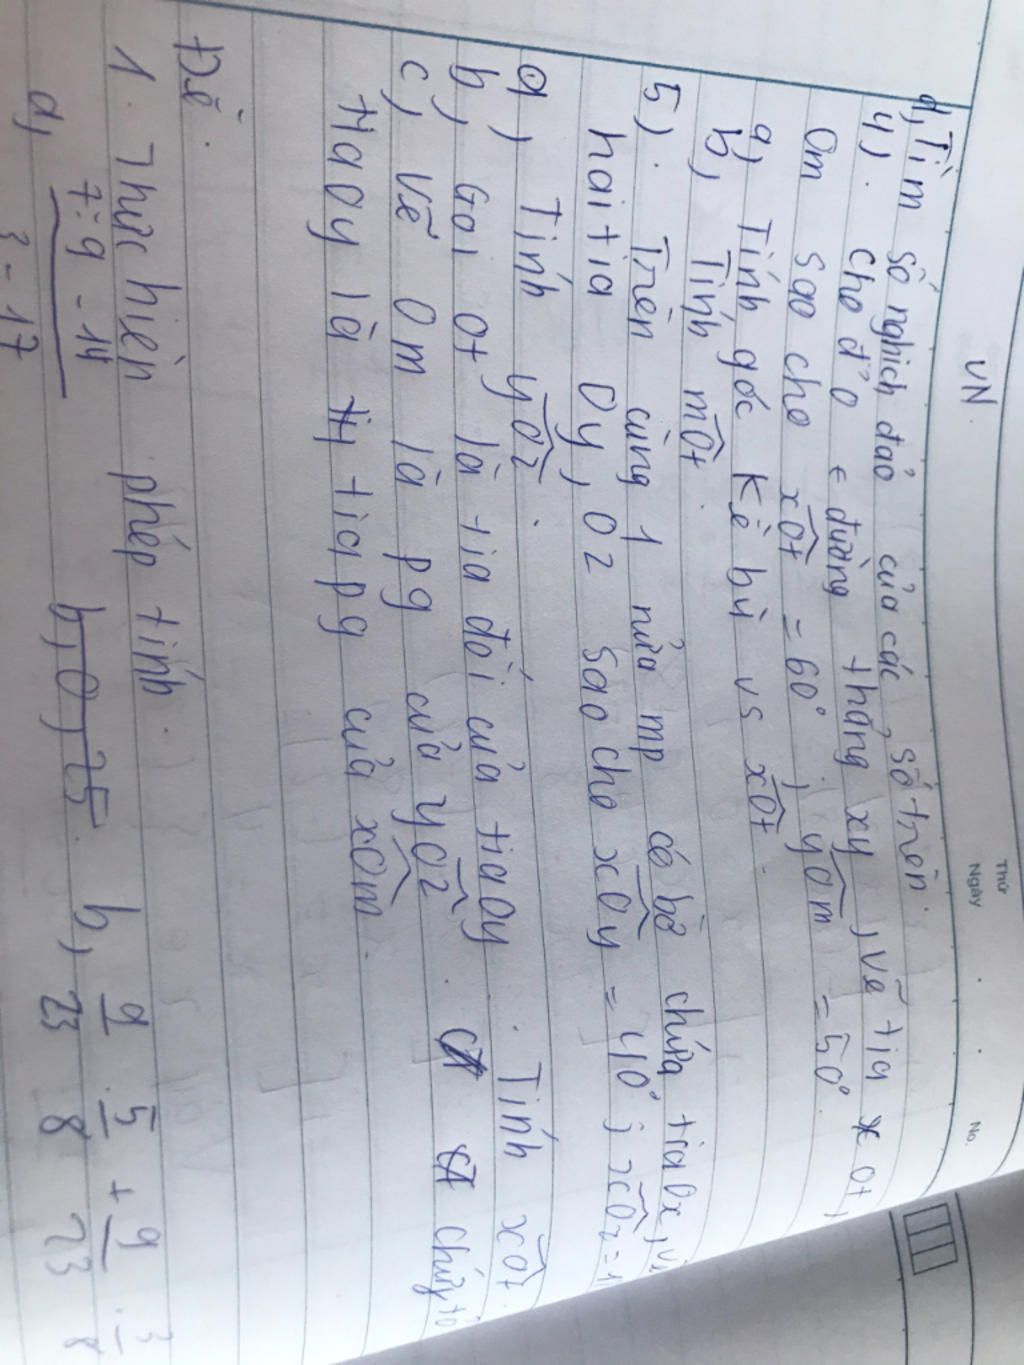 VN
Thứ
Ngày
No.
d, Tìm số nghịch đảo của các số trên.
4). Cho đ' O ∈ đường thẳng xy, vẽ tia Ot,
Om sao cho xOt = 60°, yOm = 50°.
a) Tính góc kề bù vs xOt.
b, Tính mOt.
5). Trên cùng 1 nửa mp có bờ chứa tia Ox, vẽ
hai tia Oy, Oz sao cho xOy = 40°; xOz = 1
a, Tính yOz.
b, Gọi Ot là tia đối của tia Oy. Tính xOt.
c, Vẽ Om là pg của yOz. chứng tỏ
tia Oy là tia pg của xOm.
Đề.
1. Thực hiện phép tính.
a, 7.9 - 14 / 3 - 17 b, 9/23 . 5/8 + 9/23 . 3/8